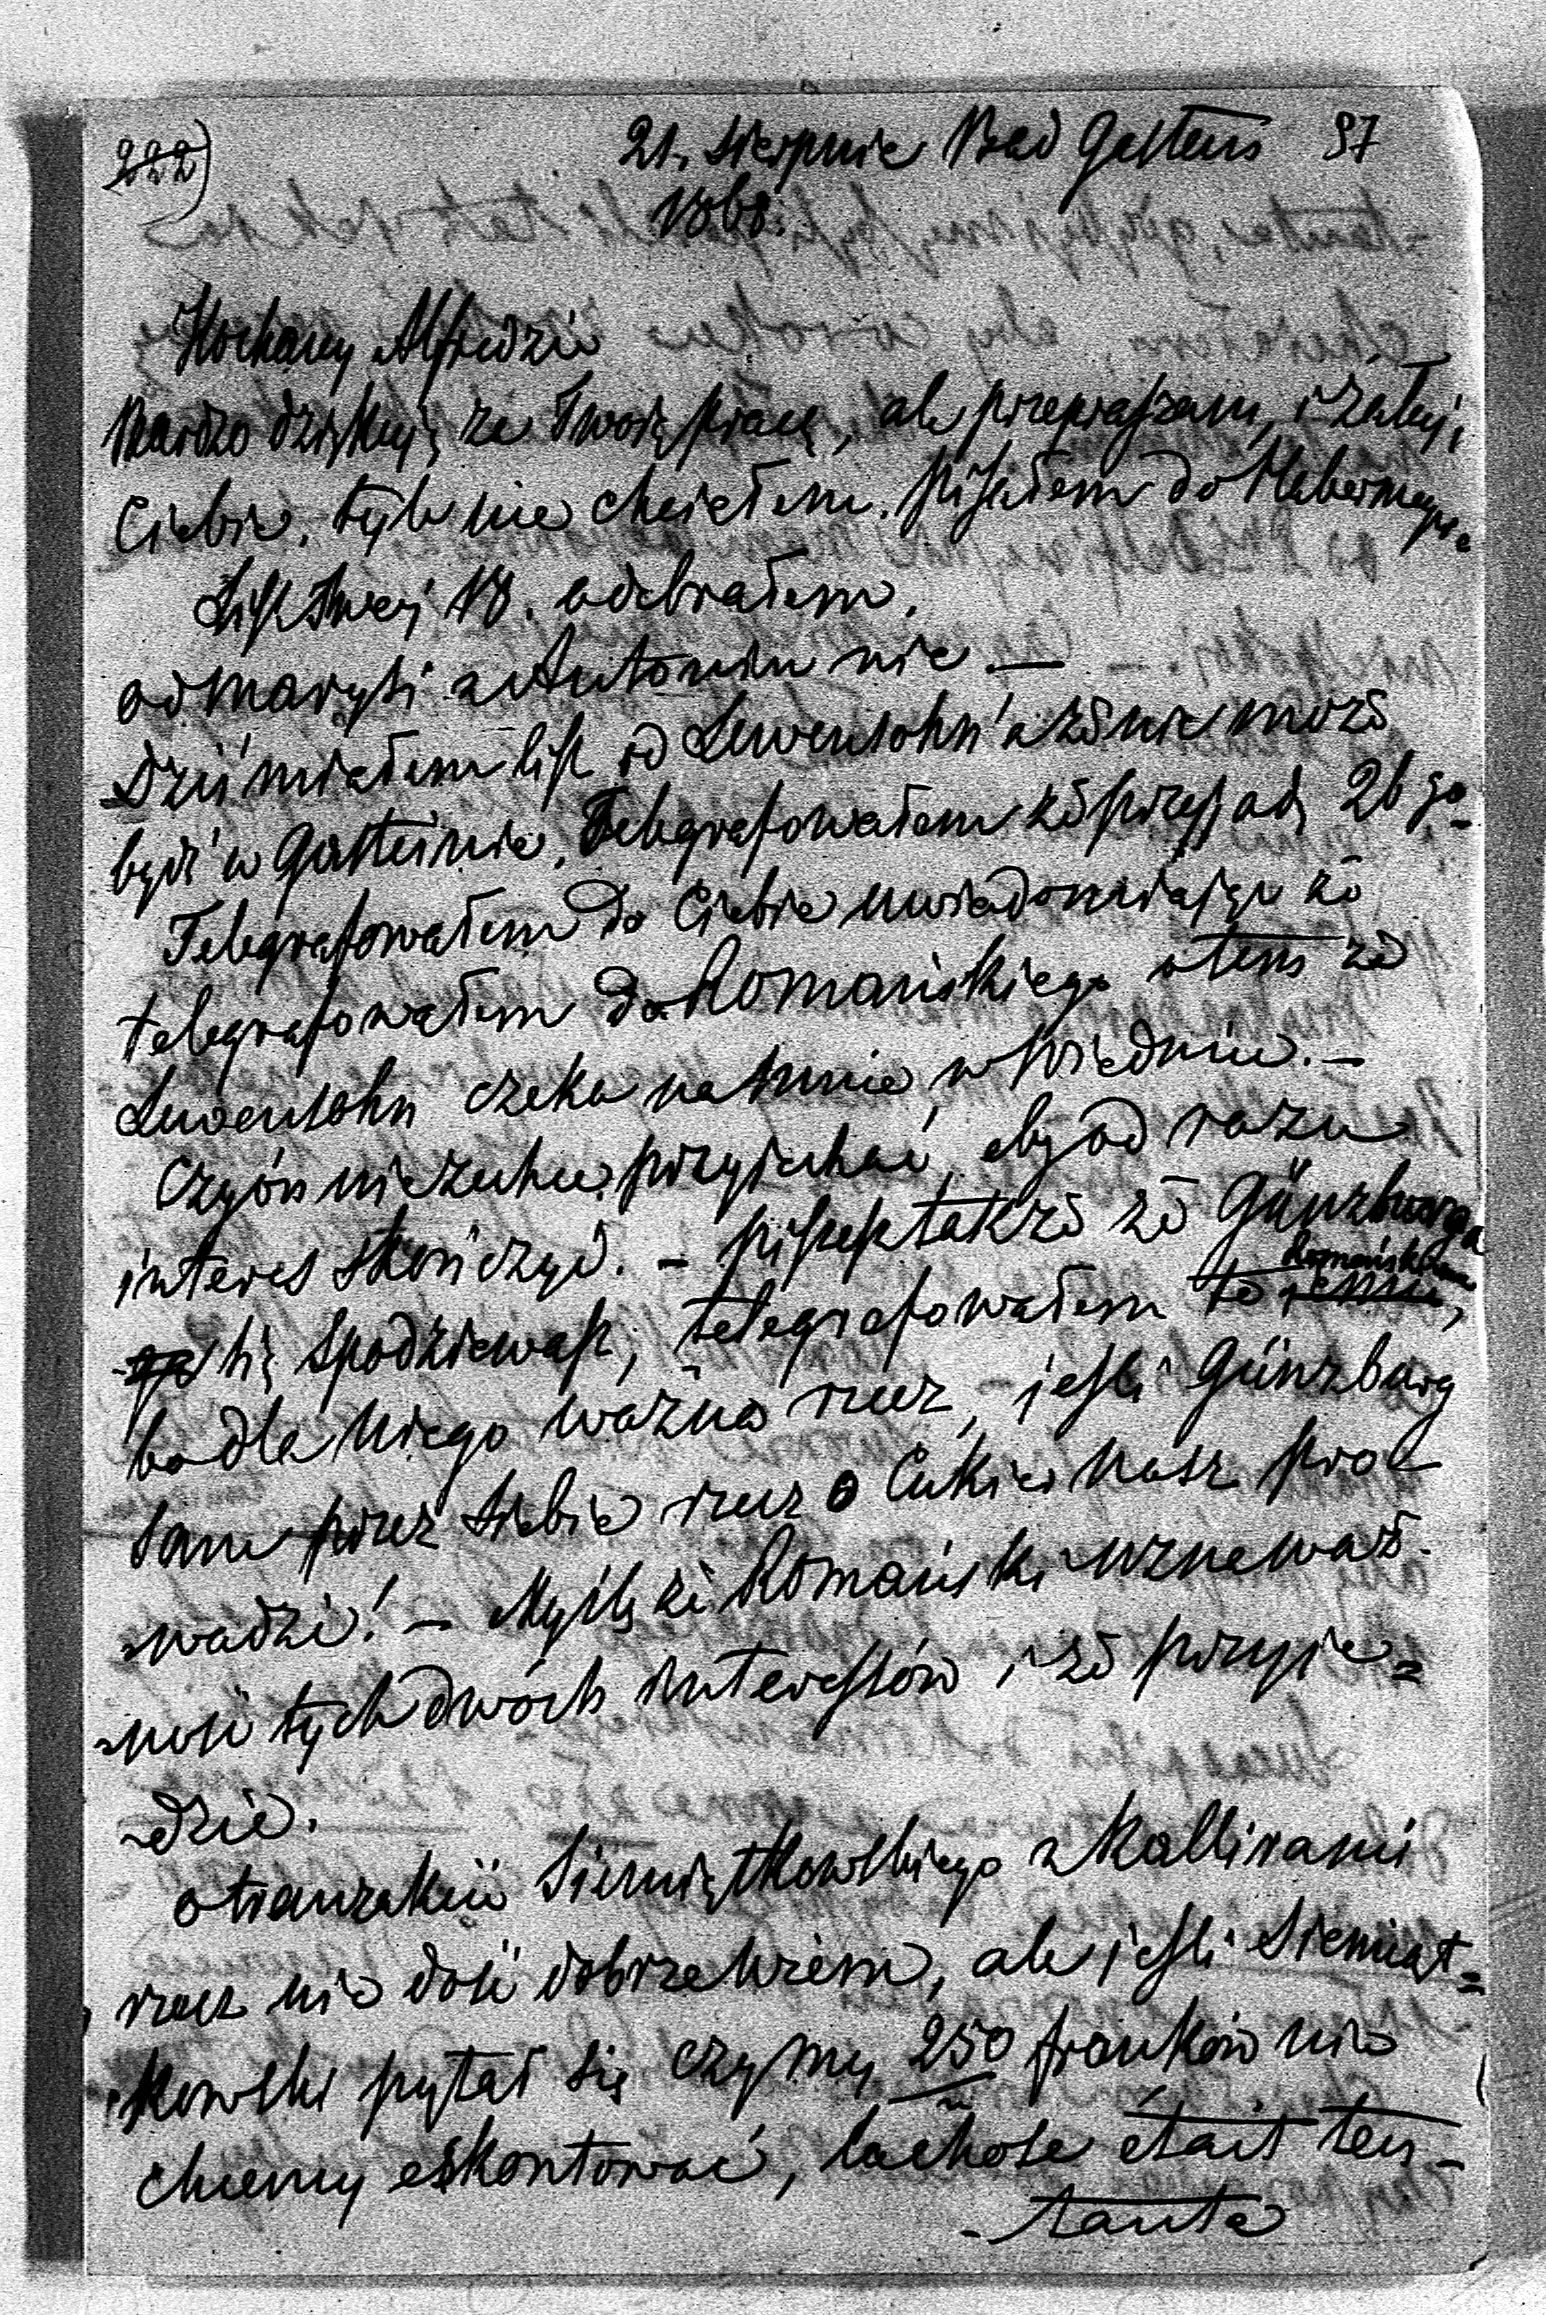 222) 21. Sierpnia Bad Gastein 97
1868.
Kochany Alfredzie
Bardzo dziękuję za Twoię pracę, ale przepraszam, i żałuję,
Ciebie, tyle nie chciałem. pisałem do Habermeyera
List Twój 18. odebrałem.
od Marysi z Antonin nic. —
Dziś miałem list od Lewensohn'a że nie może
być w Gasteinie. Telegrafowałem że przyjadę 26go.
Telegrafowałem do Ciebie uwiadomiając że
telegrafowałem do Romańskiego o tem że
Lewensohn czeka na mnie w Wiedniu. —
Czy on nie zechce przyjechać, aby od razu
interes skończyć. — piszesz także że Günzburga
się spodziewasz, telegrafowałem to jemu, Romańskiemu
bo dla niego ważna rzecz, jeśli Günzburg
sam przez siebie rzecz o Cukier nasz pro-
wadzi! — Myślę że Romański uzna waż-
ność tych dwóch interessów i że przyje=
dzie.
o tranzakcii Siemiątkowskiego z Kallirami
rzecz nie dość dobrze wiem, ale jeśli Siemiąt=
kowski pytał się czy my 250 franków nie
chcemy eskontować, la chose était ten-
tante